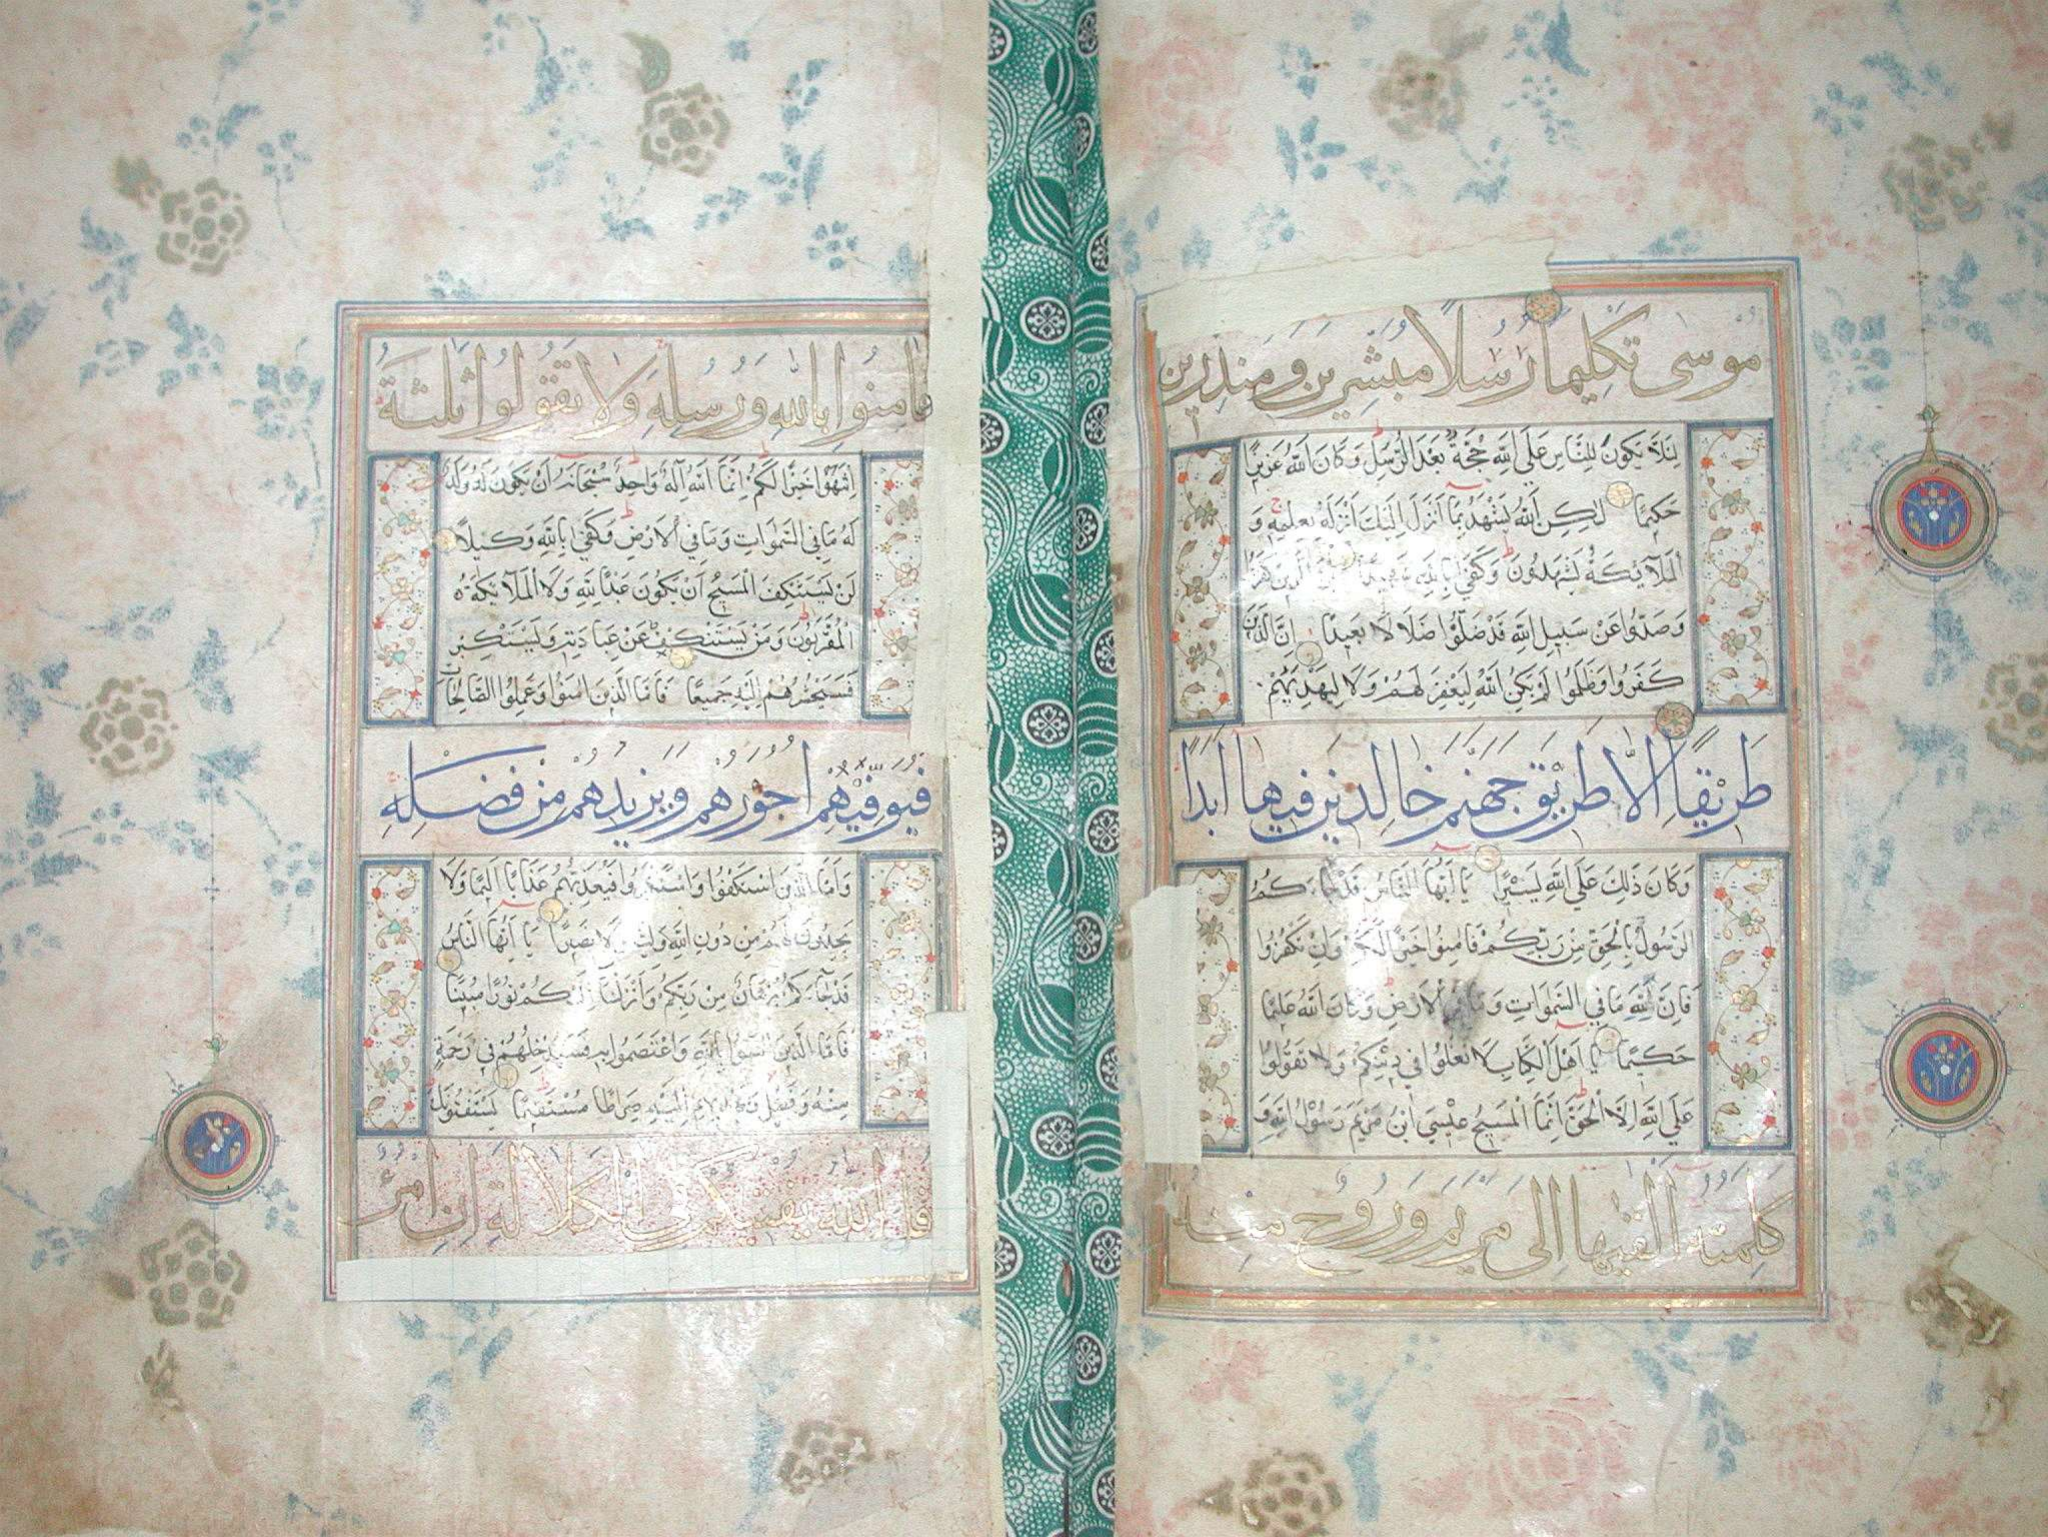 موسى تكليما رسلا مبشرين ومنذرين
لئلا يكون للناس على الله حجة بعد الرسل وكان الله عزيزا
حكيما لكن الله يشهد بما أنزل اليك أنزله بعلمه و
الملآئكة يشهدون وكفى بالله شهيدا الذين كفروا
وصدوا عن سبيل الله قد ضلوا ضلالا بعيدا ان الذين
كفروا وظلموا لم يكن الله ليغفر لهم ولا ليهديهم
طريقا الا طريق جهنم خالدين فيها ابدا
وكان ذلك على الله يسيرا يا أيها الناس قد جاءكم
الرسول بالحق من ربكم فامنوا خيرا لكم وان تكفروا
فان لله ما في السموات وما في الارض وكان الله عليما
حكيما يا اهل الكتاب لا تغلوا في دينكم ولا تقولوا
على الله الا الحق انما المسيح عيسى ابن مريم رسول الله و
كلمته القيها الى مريم وروح منه
فامنوا بالله ورسله ولا تقولوا ثلثة
انتهوا خيرا لكم انما الله اله واحد سبحانه أن يكون له ولد
له ما في السموات وما في الارض وكفى بالله وكيلا
لن يستنكف المسيح أن يكون عبدا لله ولا الملآئكة
المقربون ومن يستنكف عن عبادته ويستكبر
فسيحشرهم اليه جميعا فاما الذين امنوا وعملوا الصالحات
فيوفيهم اجورهم ويزيدهم من فضله
وأما الذين استنكفوا واستكبروا فيعذبهم عذابا اليما ولا
يجدون لهم من دون الله وليا ولا نصيرا يا أيها الناس
قد جآءكم برهان من ربكم وأنزلنا اليكم نورا مبينا
فاما الذين امنوا بالله واعتصموا به فسيدخلهم في رحمة
منه وفضل ويهديهم اليه صراطا مستقيما يستفتونك
قل الله يفتيكم في الكلالة ان امرؤ